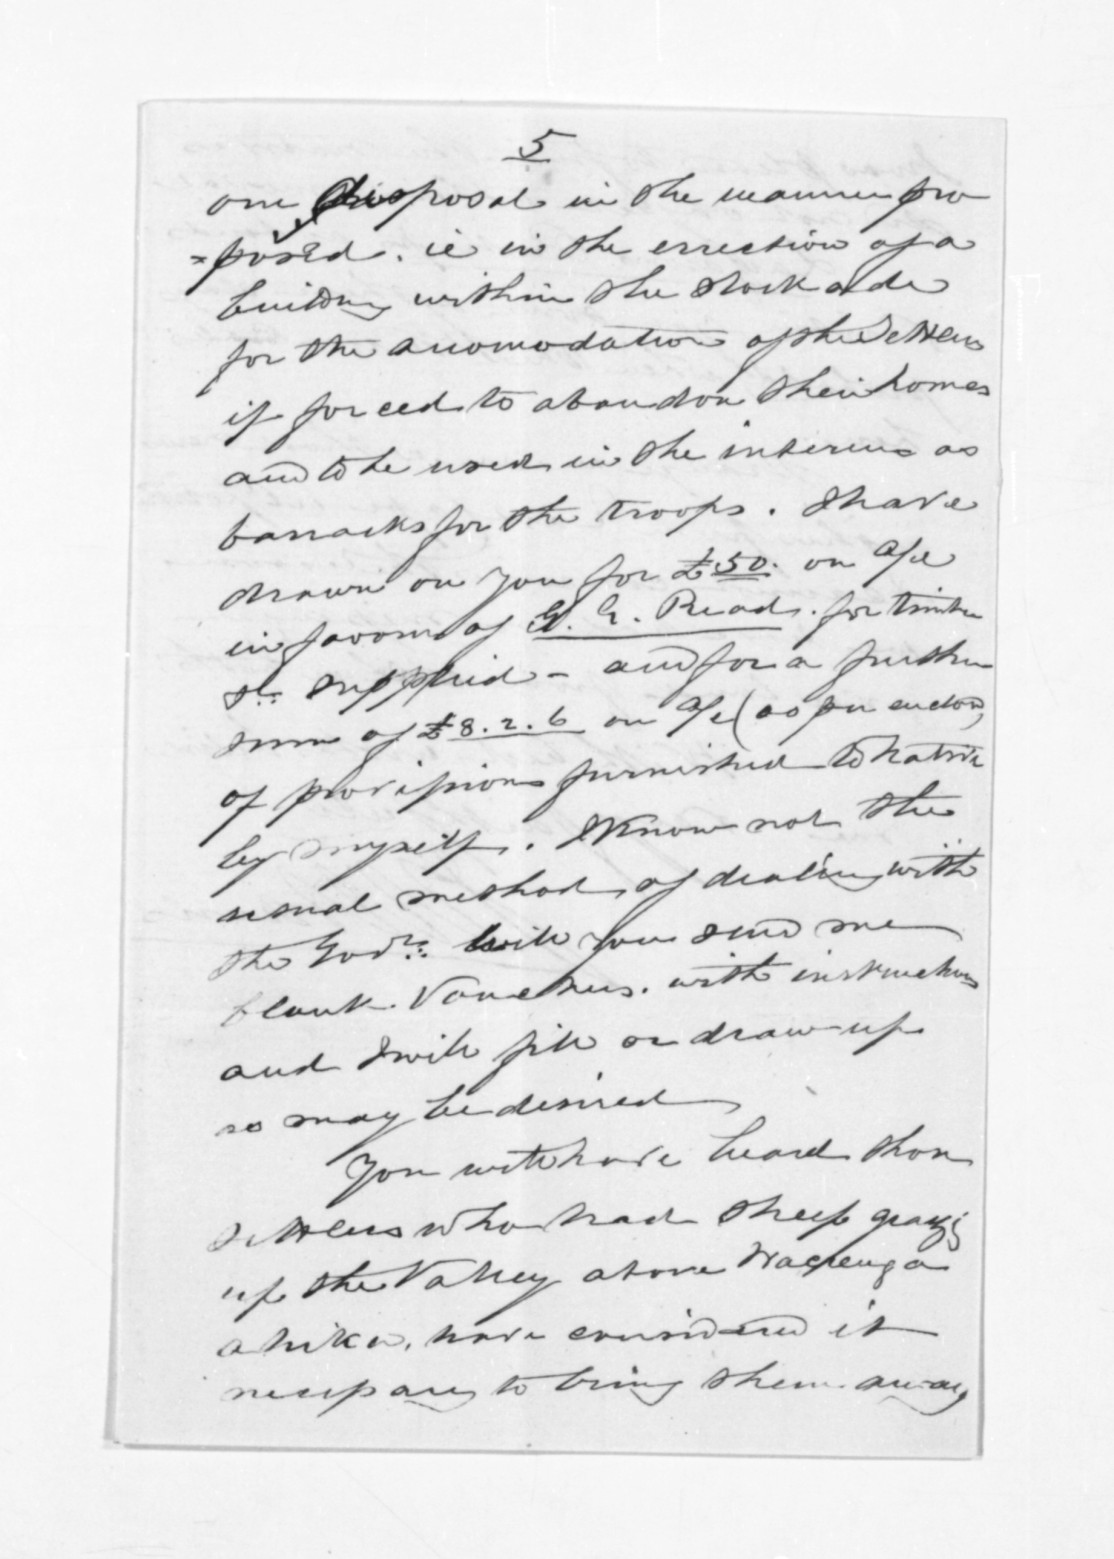 5
our disposal in the manner pro
posed. ie in the errection of a
building within the stockade
for the acomodation of the Settlers
if forced to abandon their homes
and to be used in the interim as
barracks for the troops. I have
drawn on you for £50. on a/c
in favour of G. E. Read. for timber
&c: supplied - and for a further
sum of £8.2.6 on a/c (as per enclosd)
of provisions furnished to Natives
by myself. I know not the
usual method of dealing with
the Govt: Will you send me
blank Vouchers. with instructions
and I will fill or draw up
as may be desired
You will have heard that
settlers who had sheep grazg
up the Valley above Waerenga
ahika, have considered it
necessary to bring them away